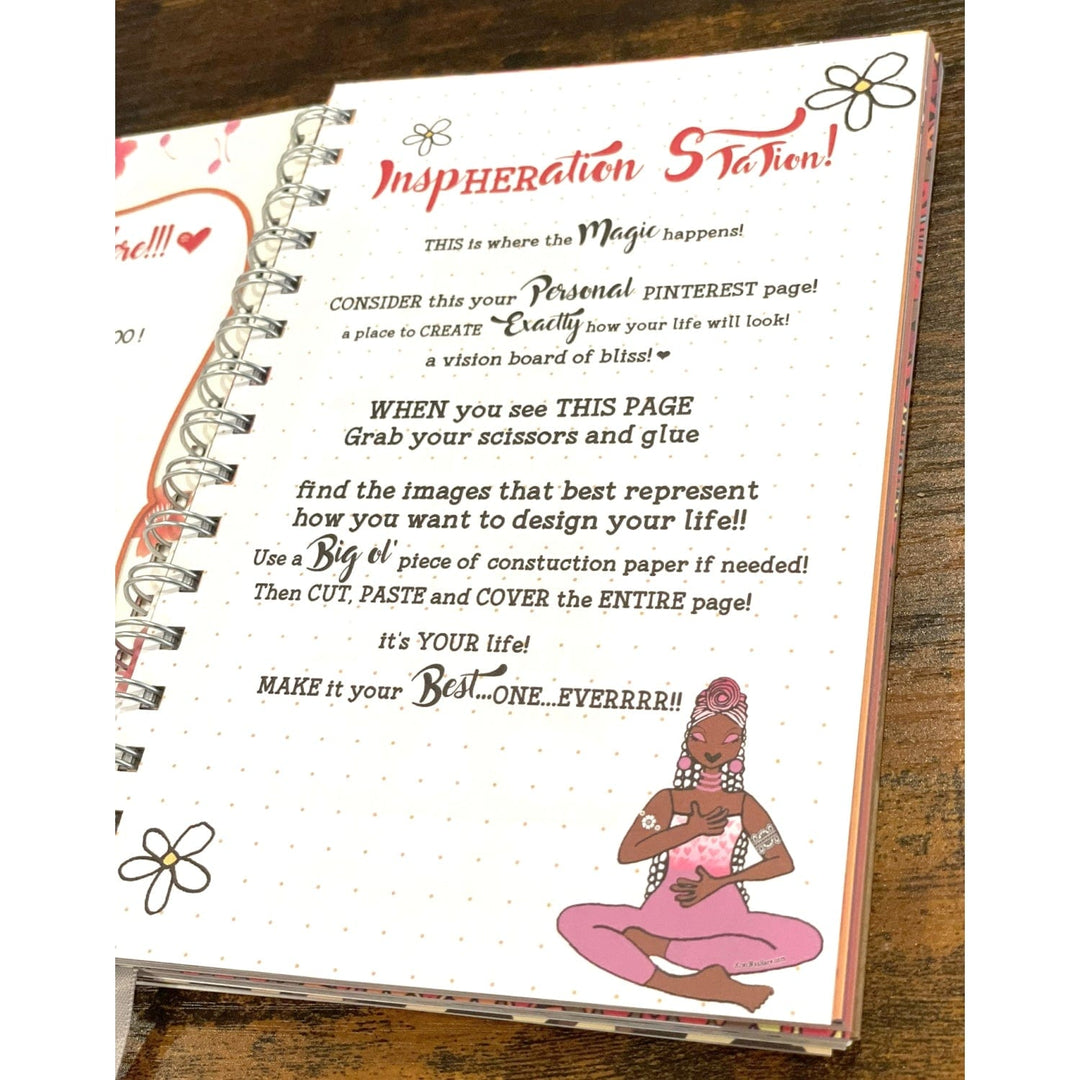 InspHERation Station!
THIS is where the Magic happens!
CONSIDER this your Personal PINTEREST page!
a place to CREATE Exactly how your life will look!
a vision board of bliss! ❤
WHEN you see THIS PAGE
Grab your scissors and glue
find the images that best represent
how you want to design your life!!
Use a Big ol' piece of constuction paper if needed!
Then CUT, PASTE and COVER the ENTIRE page!
it's YOUR life!
MAKE it your Best...ONE...EVERRRR!!